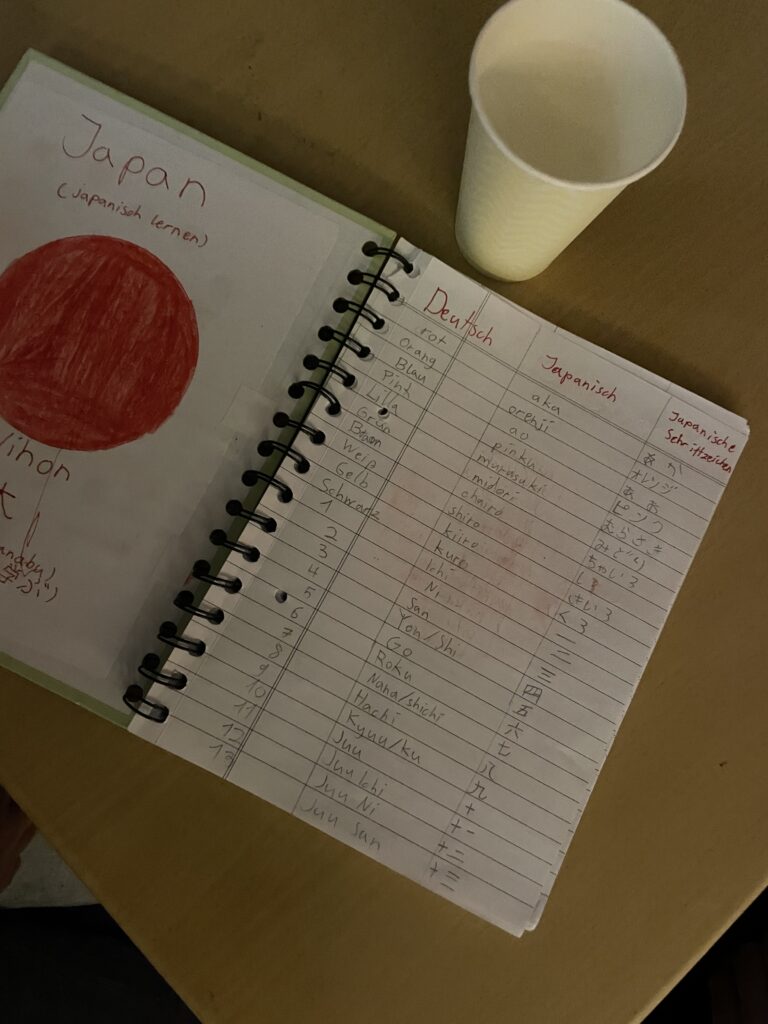 Japan
(Japanisch lernen)
ihon
anabu)
学ぶ)
Deutsch Japanisch Japanische Schriftzeichen
rot aka あか
Orang orenji オレンジ
Blau ao あお
Pink pinku ピンク
Lila murasukii むらさき
Grün midori みどり
chairo ちゃいろ
Weiß shiro し
Gelb kiiro きいろ
Schwarz kuro くろ
1 Ichi 一
2 Ni 二
3 San 三
4 Yon/Shi 四
5 Go 五
6 Roku 六
7 Nana/shichi 七
8 Hachi 八
9 Kyuu/ku 九
10 Juu 十
11 Juu Ichi 十一
12 Juu Ni 十二
13 Juu San 十三